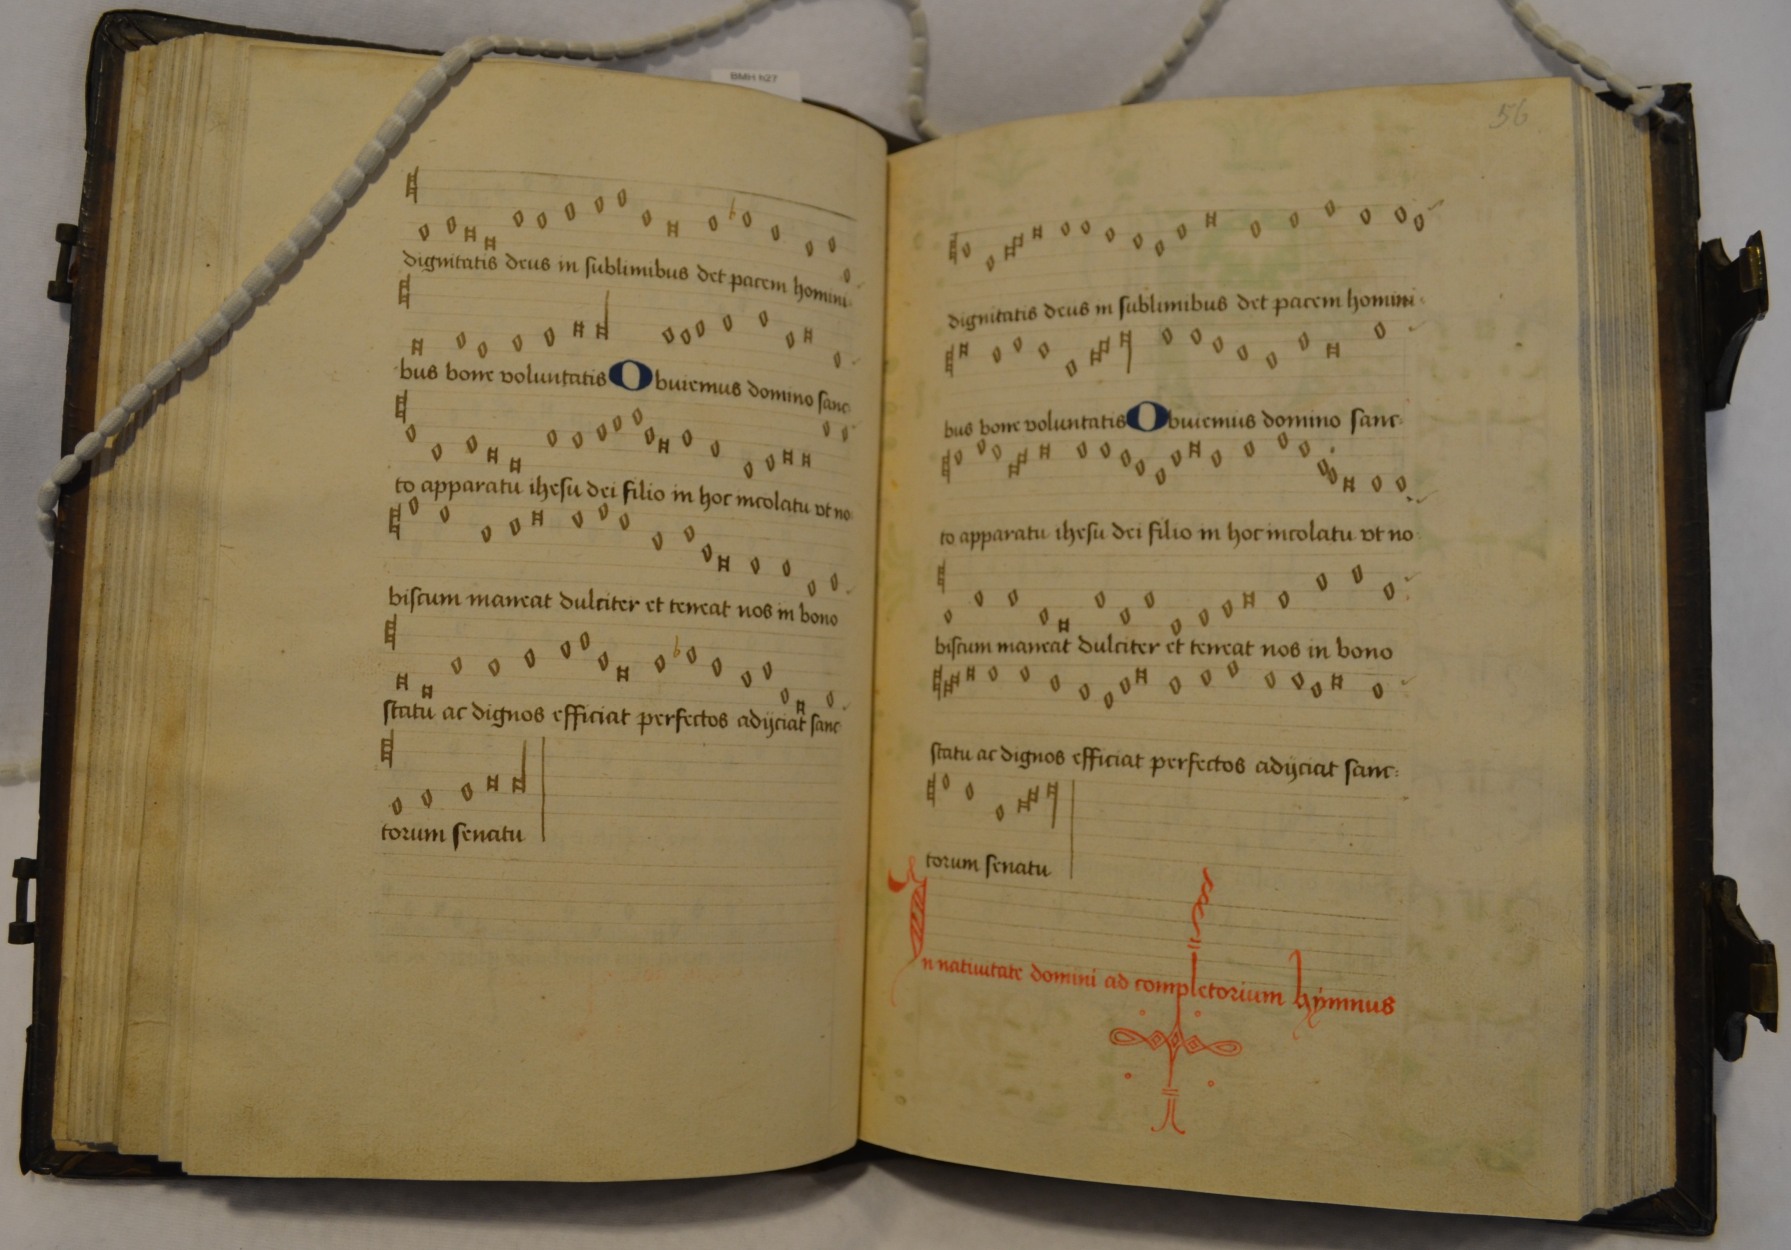 BMH h27
dignitatis deus in sublimibus det pacem homini
bus bone voluntatis Obuiemus domino sanc
to apparatu ihesu dei filio in hoc incolatu vt no
biscum maneat dulciter et teneat nos in bono
statu ac dignos efficiat perfectos adijciat sanc
torum senatu
56
dignitatis deus in sublimibus det pacem homini
bus bone voluntatis Obuiemus domino sanc:
to apparatu ihesu dei filio in hoc incolatu vt no
biscum maneat dulciter et teneat nos in bono
statu ac dignos efficiat perfectos adijciat sanc:
torum senatu
In natiuitate domini ad completorium hymnus